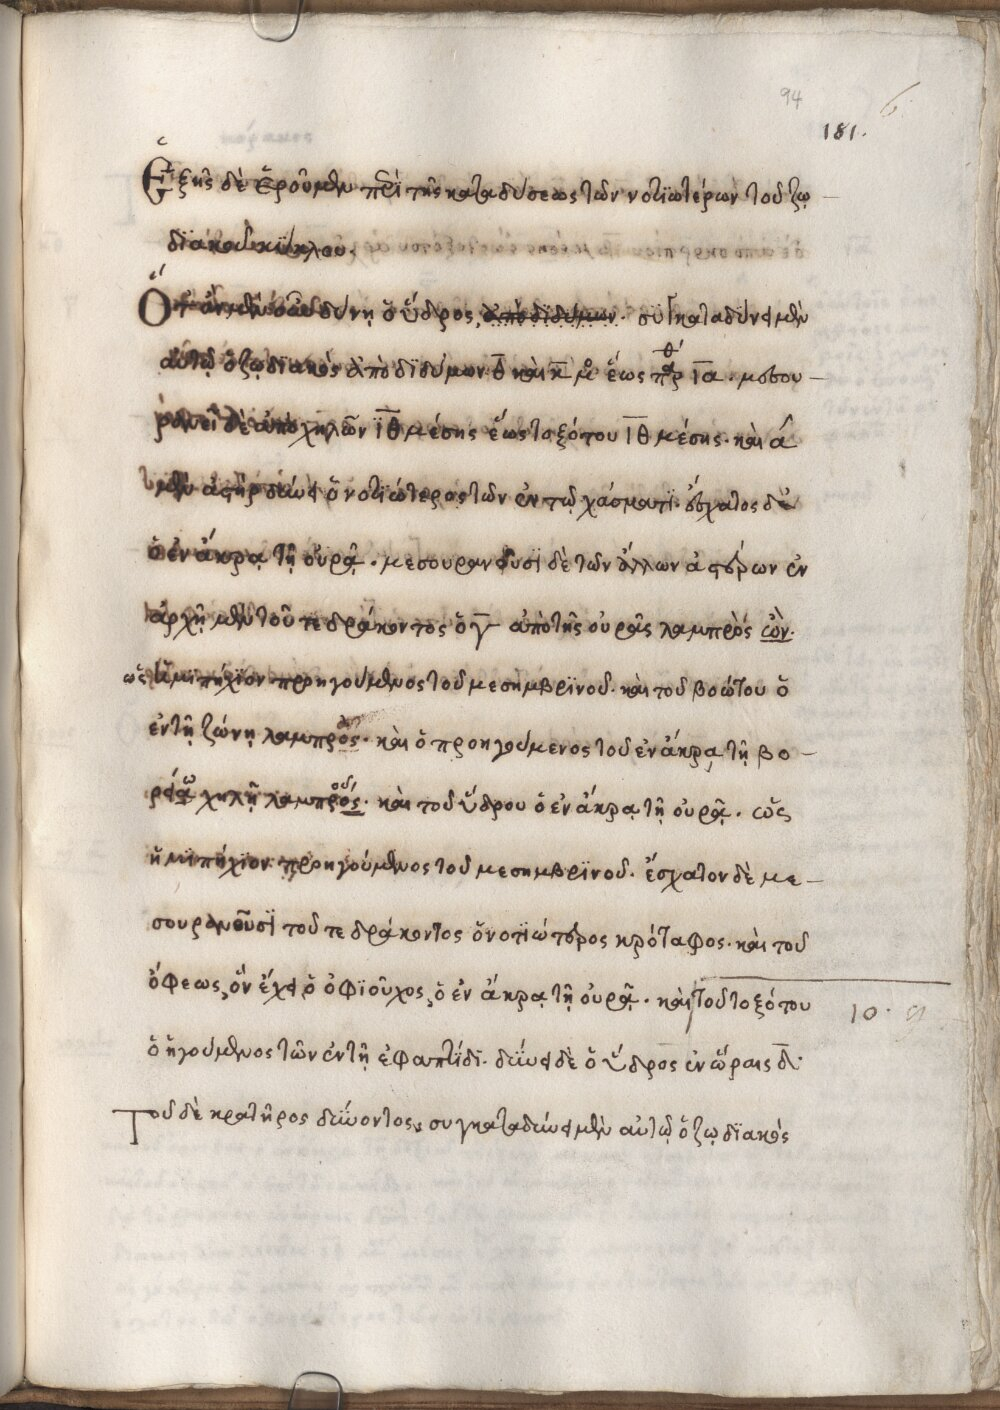 94
6
181.
Ἑξῆς δὲ ἐροῦμεν περὶ τῆς καταδύσεως τῶν νοτϊωτέρων τοῦ ζω
δϊακοῦ κύκλου.
Ὅταν μὲν οὖν δύνῃ ὁ ὕδρος, ἀπὸ διδύμων. συγκαταδύνει μὲν
αὐτῷ ὁ ζῳδϊακὸς ἀπὸ δϊδύμων θ καὶ κ μο ἕως παρ θέ ια. μεσου
ρανεῖ δὲ ἀπὸ χηλῶν ιθ μέσης ἕως τοξότου ιθ μέσης. καὶ α
μὲν ἀστὴρ δύνει ὁ νοτϊώτερος τῶν ἐν τῷ χάσματϊ. ἔσχατος δὲ
ὁ ἐν ἄκρᾳ τῇ οὐρᾷ. μεσουρανοῦσϊ δὲ τῶν ἄλλων ἀστέρων ἐν
ἀρχῇ μὲν τοῦ τε δράκοντος ὁ γ ἀπὸ τῆς οὐρᾶς λαμπρὸς ὢν.
ὡς ἡμϊπήχϊον προηγούμενος τοῦ μεσημβρϊνοῦ. καὶ τοῦ βοώτου ὁ
ἐν τῇ ζώνῃ λαμπρὸς. καὶ ὁ προηγούμενος τοῦ ἐν ἄκρᾳ τῇ βο
ρείᾳ χηλῇ λαμπρὸς. καὶ τοῦ ὕδρου ὁ ἐν ἄκρᾳ τῇ οὐρᾷ. ὡς
ἡμϊπήχϊον προηγούμενος τοῦ μεσημβρϊνοῦ. ἔσχατον δὲ με
σουρανοῦσϊ τοῦ τε δράκοντος ὁ νοτϊώτερος κρόταφος. καὶ τοῦ
ὄφεως, ὃν ἔχει ὁ ὀφϊοῦχος, ὁ ἐν ἄκρᾳ τῇ οὐρᾷ. καὶ τοῦ τοξότου
10.
ὁ ἡγούμενος τῶν ἐν τῇ ἐφαπτίδϊ. δύνει δὲ ὁ ὕδρος ἐν ὥραις δ.
Τοῦ δὲ κρατῆρος δύνοντος, συγκαταδύνει μὲν αὐτῷ ὁ ζῳδϊακὸς